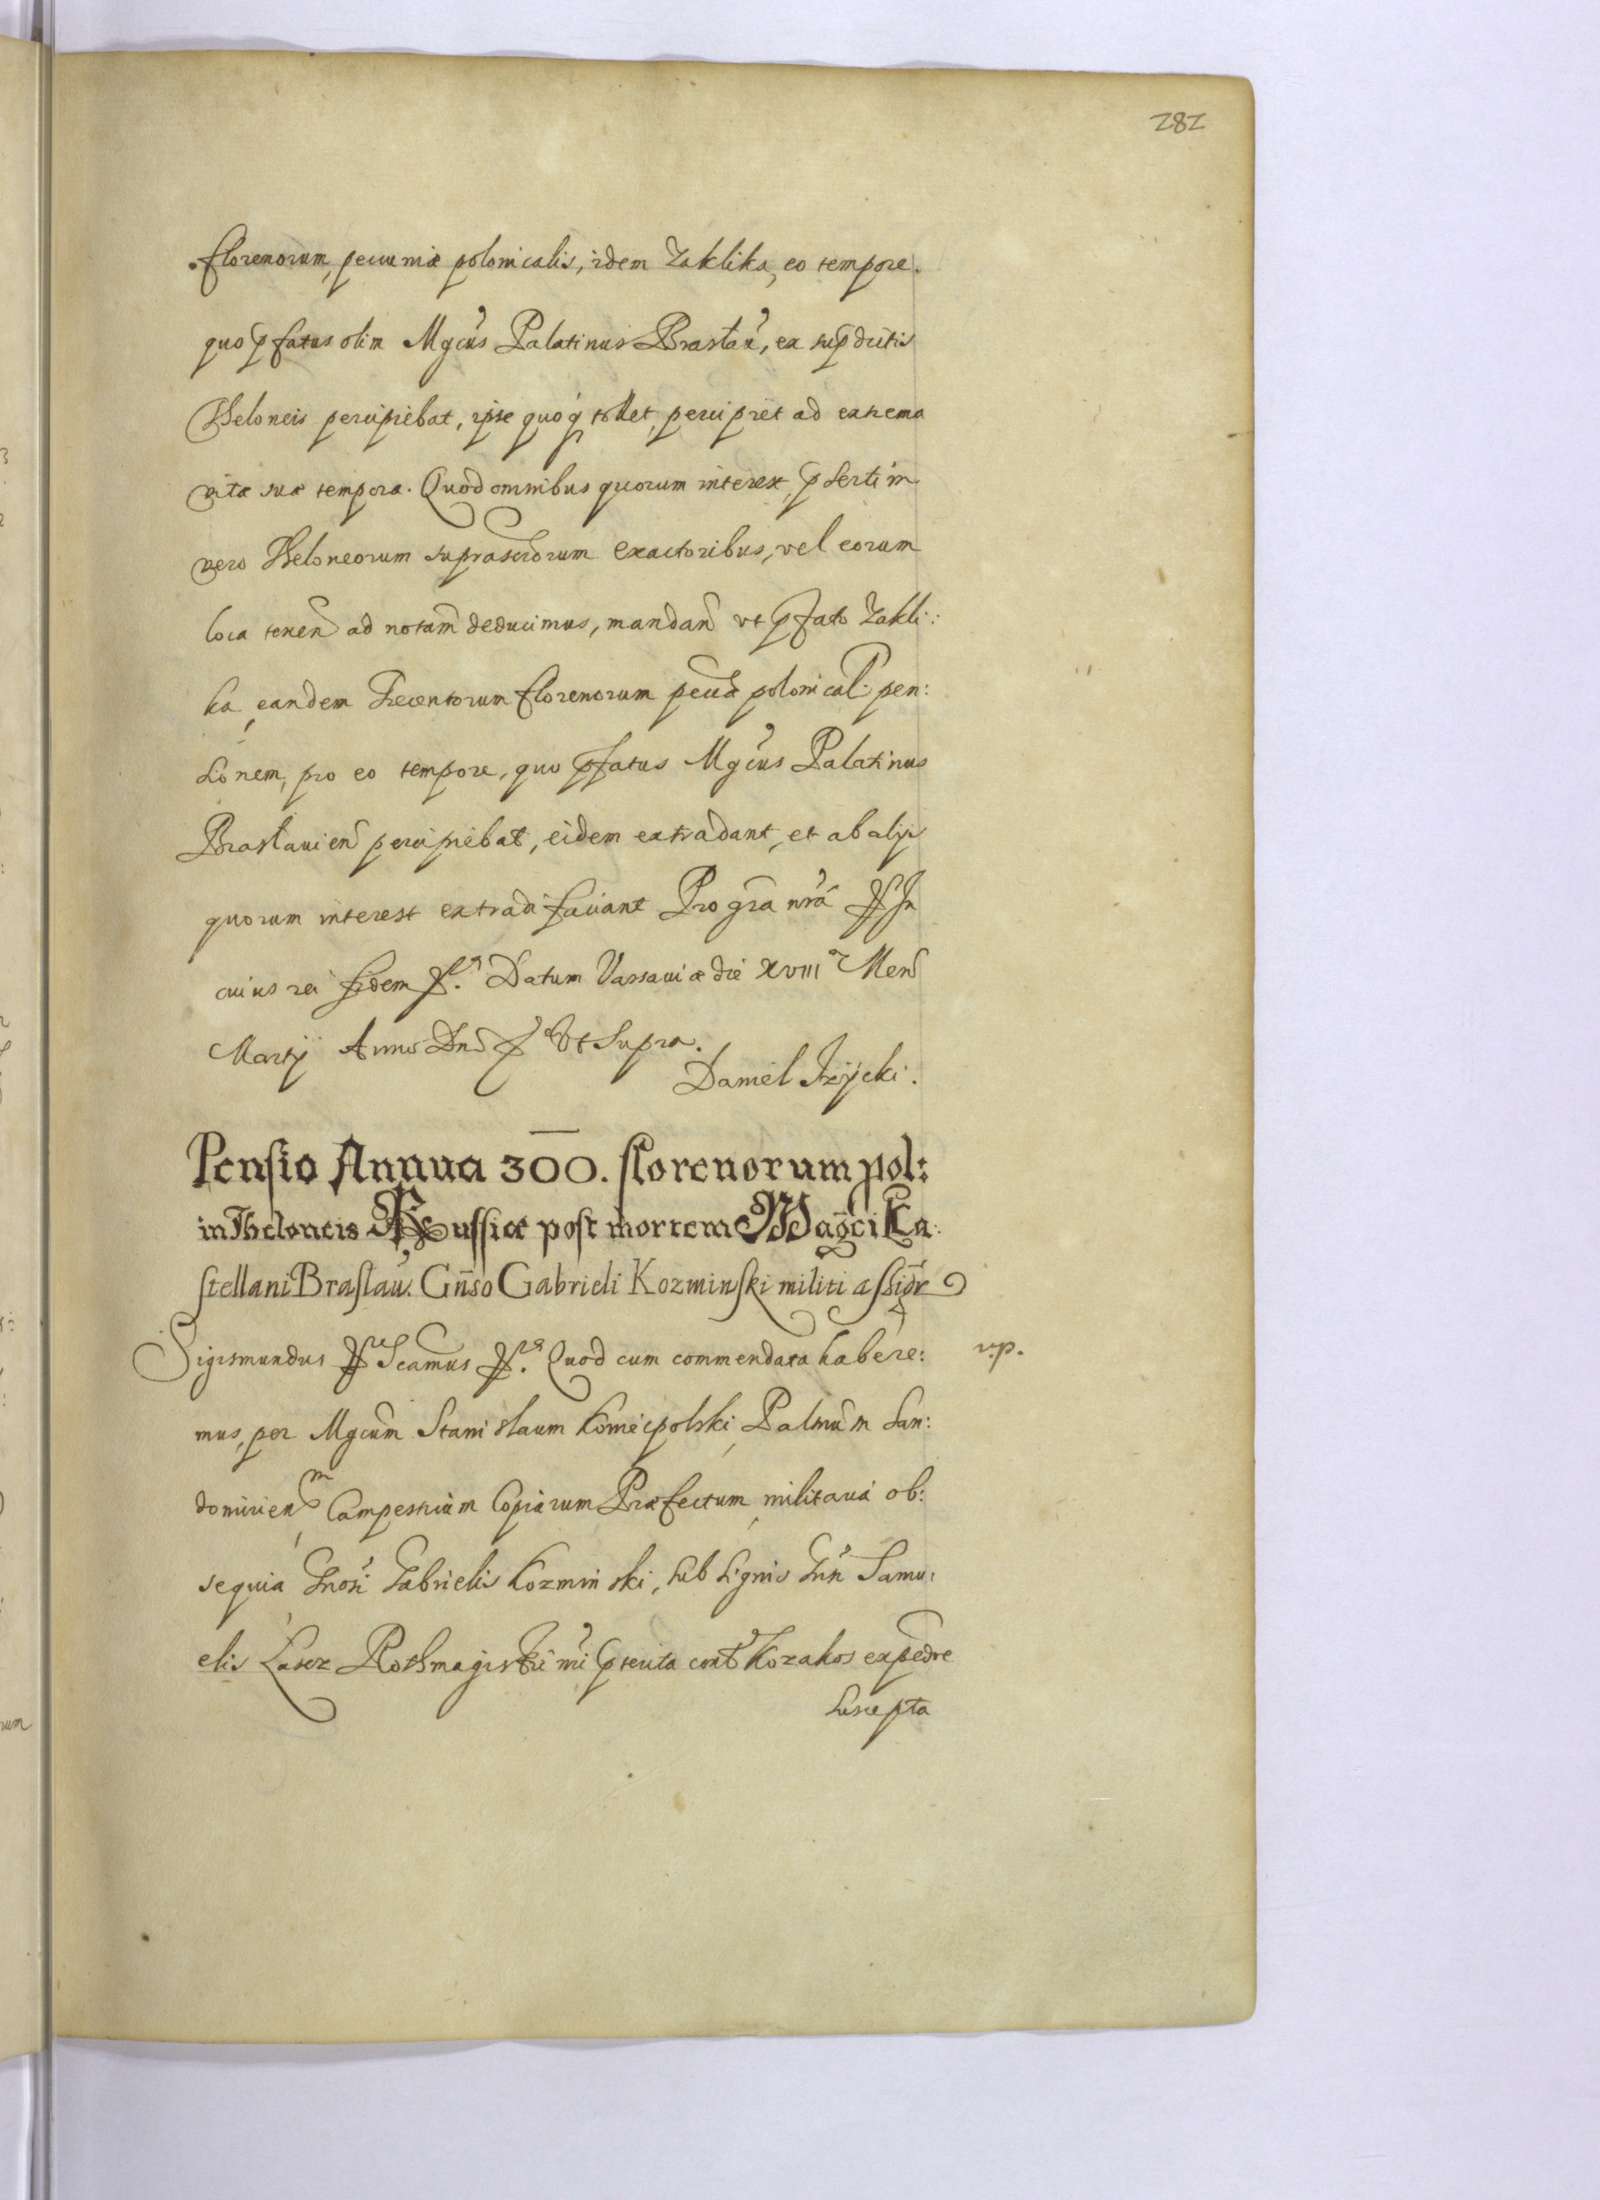 282
florenorum, pecuniæ polonicalis, idem Zaklika, eo tempore
quo p̃fatus olim Mgcũs Palatinus Brasłau̕, ex sup̃dictis
Theloneis percipiebat, ipse quoq̃ tollet, percipiet ad extrema
vitæ suæ tempora. Quod omnibus quorum interest, p̃sertim
vero Theloneorum suprascrõrum exactoribus, vel eorum
loca tenen̄ ad notam̃ deducimus, mandan̄ vt p̃fato Zakli:
ka, eandem Trecentorum florenorum pecũæ polonical: pen:
sionem, pro eo tempore, quo p̃fatus Mgcũs Palatinus
Brasłauien̄ percipiebat, eidem extradant, et ab alijs
quorum interest extradi faciant Pro grã nrã In
cuius rei fidem Datum Varsauiæ die XVIII Men̄
Martij Anno Dn̄ Vt supra.
Daniel Iżÿcki.
Pensio Annua 300. florenorum pol:
in Theloneis Russiæ post mortem Magc̃i Ca:
stellani Brasłau. Gñso Gabrieli Kozminski militi assigr̃
Sigismundus Scamus Quod cum commendata habere:
v.p.
mus, per Mgcũm Stanisłaum Koniecpolski, Palnũm San:
domirien̄m Campestrium Copiarum Præfectum, militaria ob:
sequia Gnosi Gabrielis Kozminski, sub signis Gñi Samu:
elis Łascz Rothmagistri nri p̃stita cont̃ Kozakos expedr̃e
suscepta